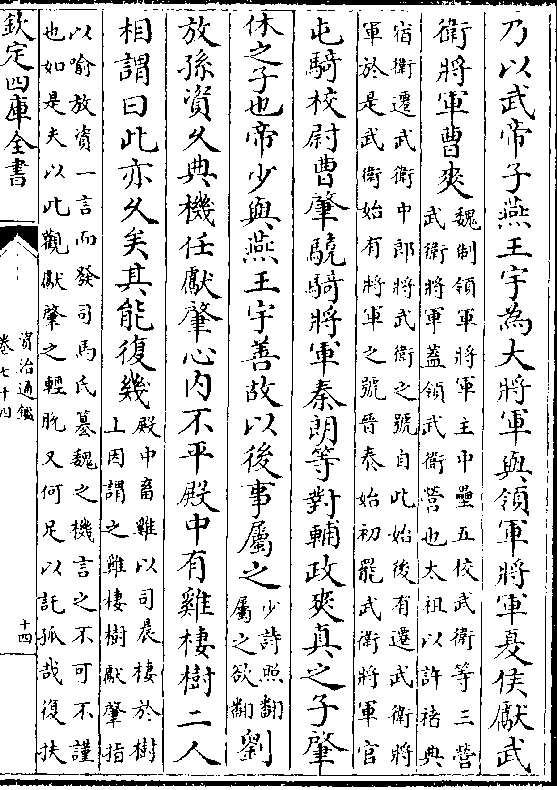 乃以武帝子燕王宇為大將軍與領軍將軍夏侯獻武
衛將軍曹爽
魏制領軍將軍主中壘五校武衛等三營
武衛將軍蓋領武衛營也太祖以許禇典
宿衛遷武衛中郎將武衛之號自此始後有遷武衛將
軍於是武衛始有將軍之號晉泰始初罷武衛將軍官
屯騎校尉曹肇驍騎將軍秦朗等對輔政爽真之子肇
休之子也帝少與燕王宇善故以後事屬之
少詩照翻
屬之欲翻
劉
放孫資久典機任獻肇心内不平殿中有雞棲樹二人
相謂曰此亦久矣其能復幾
殿中畜雞以司晨棲於樹
上因謂之雞棲樹獻肇指
以喻放資一言而發司馬氏簒魏之機言之不可不謹
也如是夫以此觀獻肇之輕脱又何足以託孤哉復扶
欽定四庫全書
資治通鑑
卷七十四
十四